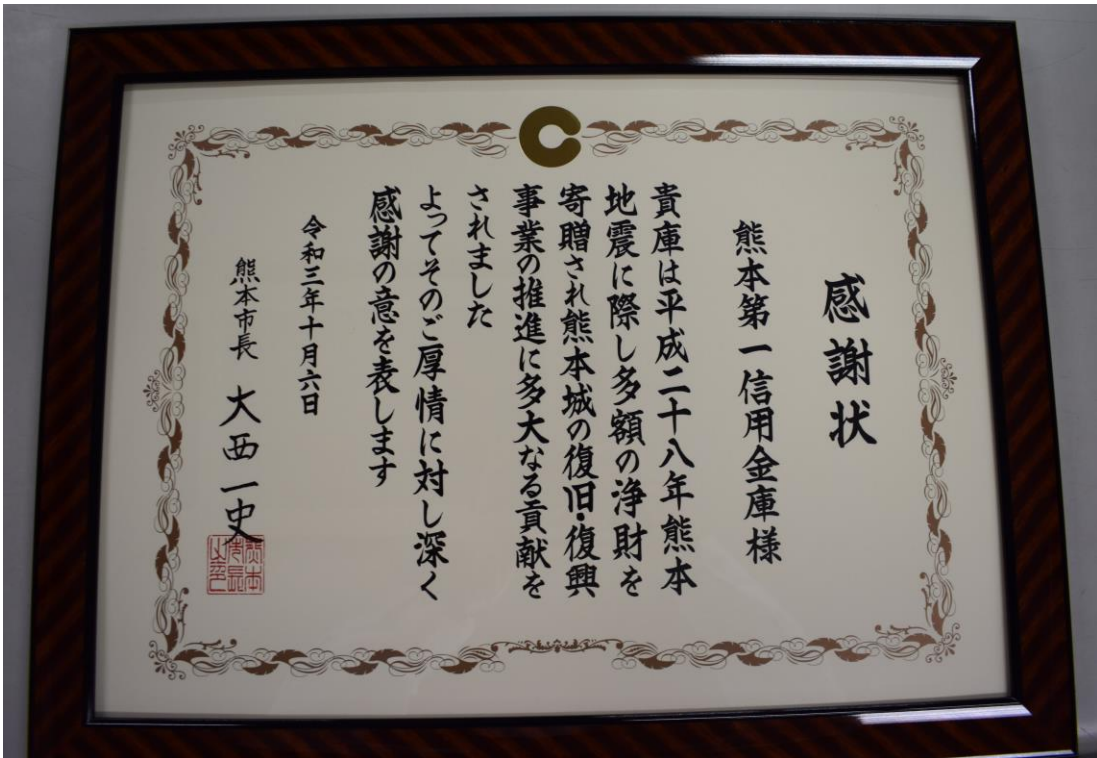 感謝状
熊本第一信用金庫様
貴庫は平成二十八年熊本
地震に際し多額の浄財を
寄贈され熊本城の復旧・復興
事業の推進に多大なる貢献を
されました
よってそのご厚情に対し深く
感謝の意を表します
令和三年十月六日
熊本市長 大西一史
熊本
市長
之印